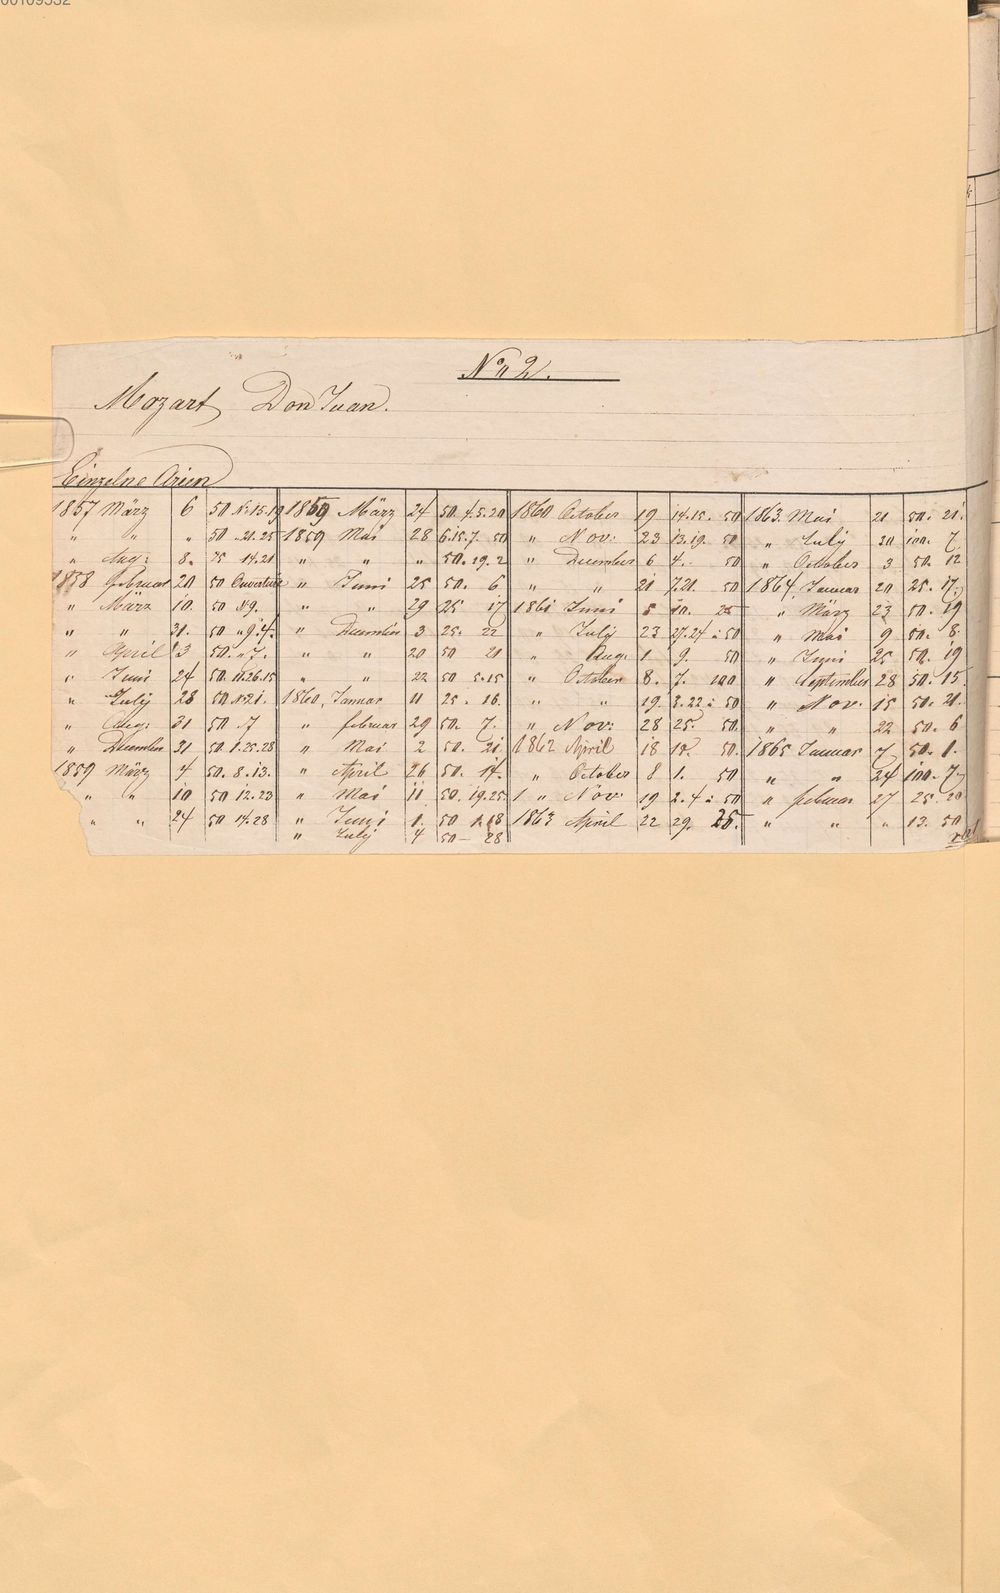 00109532
No 2.
Mozart Don Juan.
Einzelne Arien
1857 März 6 50 No 15.19 1859 März 24 50 4.5.20 1860 October 19 14.15. 50 1863. Mai 21 50. 21.
" " " 50 .. 21.25 1859 Mai 28 6.15.7. 50 " Nov: 23 13.19. 50 " July 20 100. 7.
" Aug: 8. 25 14.21 " " " 50. 19.2 " December 6 4. 50 " October 3 50. 12
1858 februar 20 50 Ouverture " Juni 25 50. 6. " " 21 7.21. 50 1864. Januar 20 25. 17.
" März 10. 50 No 9. " " 29 25 17 1861 Juni 5 10. 25 " März 23 50. 19
" " 31. 50 " 9.4. " December 3 25. 22 " July 23 27.24 à 50 " Mai 9 50. 8.
" April 3 50. " 7. " " 20 50 21 " Aug. 1 9. 50 " Juni 25 50. 19
" Juni 24 50. 26.15 " " 22 50 5.15 " October 8. 7. 100 " September 28 50. 15.
" July 28 50 No 21. 1860. Januar 11 25. 16. " " 19. 3.22 à 50 " Nov. 15 50. 21.
" Aug: 31 50 .7 " februar 29 50. 7. " Nov: 28 25. 50. " " 22 50. 6
" December 31 50. 1.25.28 " Mai 2 50. 21. 1862 April 18 50. 1865. Januar 7 50. 1.
1859 März 4 50. 8.13. " April 26 50. 14. " October 8 1. 50 " " 24 100. 7
" " 10 50 12.23 " Mai 11 50. 19.25 " Nov: 19 2.4 à 50 " februar 27 25. 20
" " 24 50 14.28 " Juni 1. 50 1.18 1863 April 22 29. 25. " " " 13. 50
" July 4 50 28